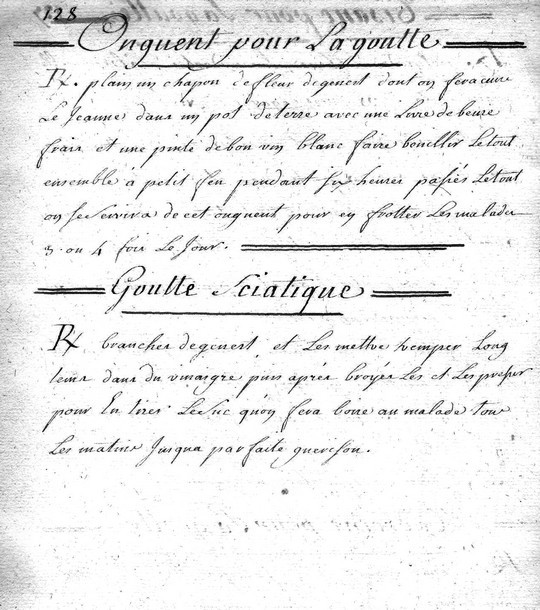 128
Onguent pour La goutte
Rx. plain un chapon de fleur de genest dont on fera cuire
Le Jeanne dans un pot de terre avec une Livre de beure
frais et une pinte de bon vin blanc faire bouellir Le tout
ensemble à petit feu pendant six heures passés Le tout
on se servira de cet onguent pour en frotter Les malades
3. ou 4 fois Le Jour.
Goutte Sciatique
Rx branches de genest, et Les mettre tremper Long
tems dans du vinaigre puis après broyés Les et Les presser
pour En tirer Le suc qu'on fera boire au malade tous
Les matins Jusqua parfaite guerison.